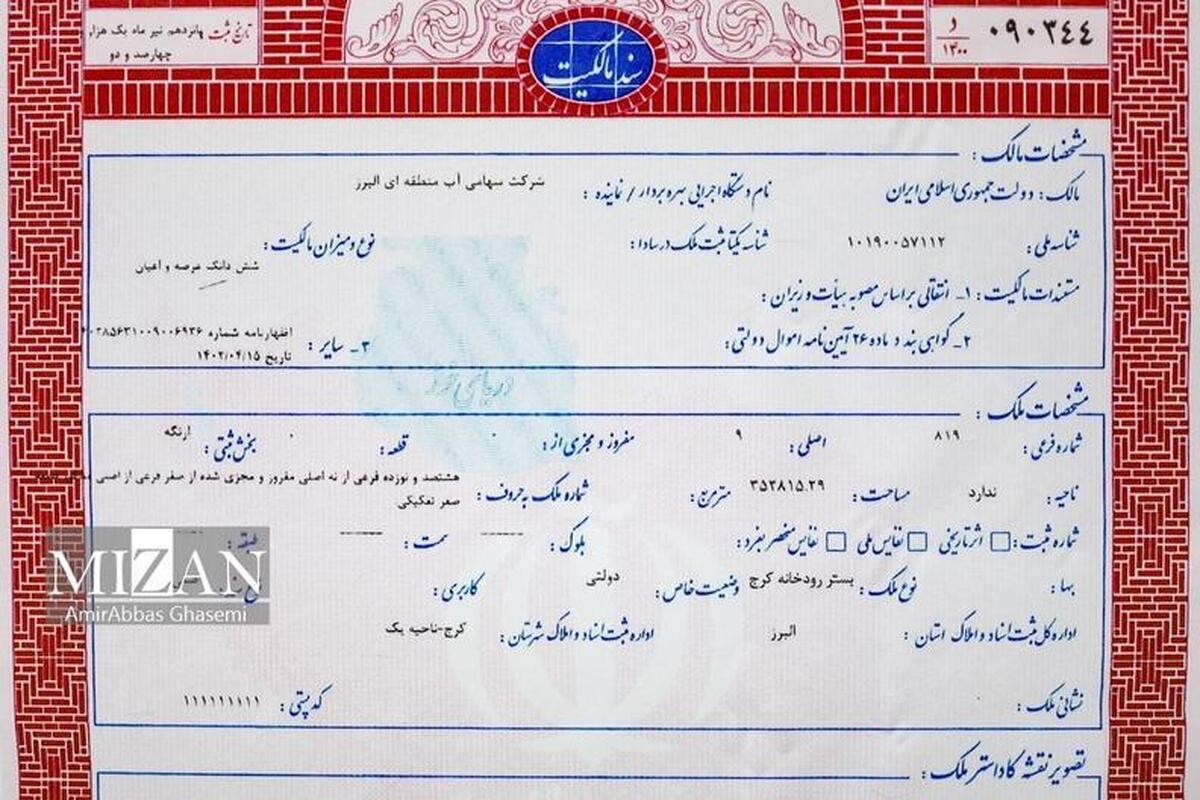 تاریخ ثبت پانزدهم تیر ماه یک هزار
چهارصد و دو
سند مالکیت
۰۹۰۳۴۴ د ۱۴۰۰
مشخصات مالک :
مالک : دولت جمهوری اسلامی ایران نام دستگاه اجرایی بهره بردار / نماینده : شرکت سهامی آب منطقه ای البرز
شناسه ملی : ۱۰۱۹۰۰۵۷۱۱۲ شناسه یکتا ثبت ملک در سادا : نوع و میزان مالکیت : شش دانگ عرصه و اعیان
مستندات مالکیت : ۱ـ انتقالی براساس مصوبه هیأت وزیران :
۲ـ گواهی بند د ماده ۲۶ آیین نامه اموال دولتی : ۳ـ سایر : اظهارنامه شماره
تاریخ ۱۴۰۲/۰۴/۱۵
دریای نور
مشخصات ملک :
شماره فرعی : ۸۱۹ اصلی : ۹ مفروز و مجزی از : ۰ قطعه : ۰ بخش ثبتی : ارنگه
ناحیه : ندارد مساحت : ۳۵۲۸۱۵.۲۹ مترمربع : شماره ملک به حروف : هشتصد و نوزده فرعی از نه اصلی مفروز و مجزی شده از صفر فرعی از اصلی
صفر تفکیکی
شماره ثبت : اثر تاریخی نفایس ملی نفایس منحصر بفرد : بلوک : ------ سمت : ------ طبقه :
بها : نوع ملک : بستر رودخانه کرج وضعیت خاص : دولتی کاربری :
اداره کل ثبت اسناد و املاک استان : البرز اداره ثبت اسناد و املاک شهرستان : کرج-ناحیه یک
نشانی ملک : کد پستی : ۱۱۱۱۱۱۱۱۱۱
تصویر نقشه کاداستر ملک :
MIZAN
AmirAbbas Ghasemi